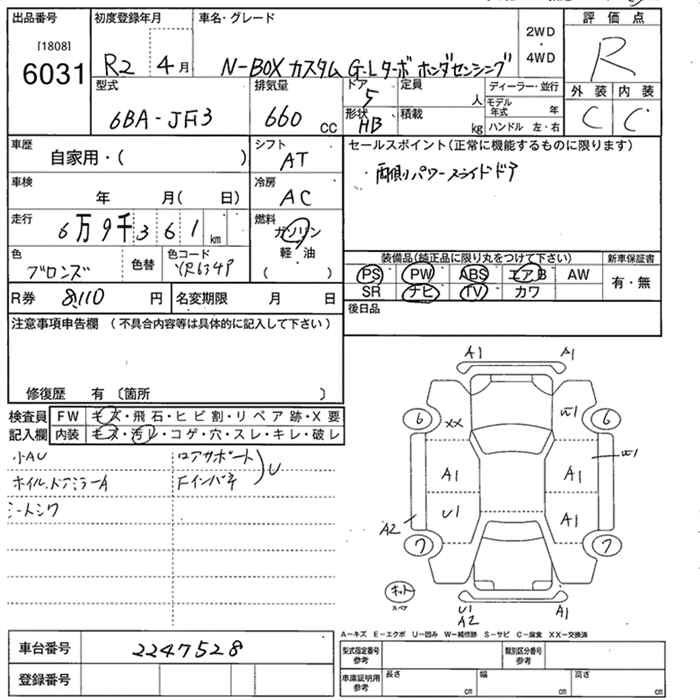 出品番号 初度登録年月 車名・グレード 2WD・4WD 評価点
[1808]
6031 R2 4月 N-BOX カスタム G-Lターボ ホンダセンシング R
型式 排気量 ドア 定員 ディーラー・並行 外装 内装
6BA-JF3 660 cc 5 人 モデル年式 年 C C
形状 HB 積載 kg ハンドル 左・右
車歴 自家用・( ) シフト AT
セールスポイント(正常に機能するものに限ります)
・両側パワースライドドア
車検 年 月( 日) 冷房 AC
走行 6万9千361km 燃料 ガソリン 軽・油 ( )
色 ブロンズ 色替 色コード YR634P
装備品(純正品に限り丸をつけて下さい) 新車保証書
PS PW ABS エアB AW 有・無
SR ナビ TV カワ
R券 8,110 円 名変期限 月 日
後日品
注意事項申告欄(不具合内容等は具体的に記入して下さい)
修復歴 有〔箇所 〕
検査員 FW キズ・飛石・ヒビ割・リペア跡・X要
記入欄 内装 キズ・汚レ・コゲ・穴・スレ・キレ・破レ
小AU コアサポート U
ホイル、ドアミラーA Fインパネ
シートシワ
A1 A1
6 XX W1 6
A1 A1 W1
U1 A1
A2
7 7
キット
スペア
U1 A1
A2
A-キズ E-エクボ U-凹み W-補修跡 S-サビ C-腐食 XX-交換済
車台番号 2247528
型式指定番号 参考 類別区分番号 参考
登録番号
車庫証明用 参考 長さ cm 幅 cm 高さ cm